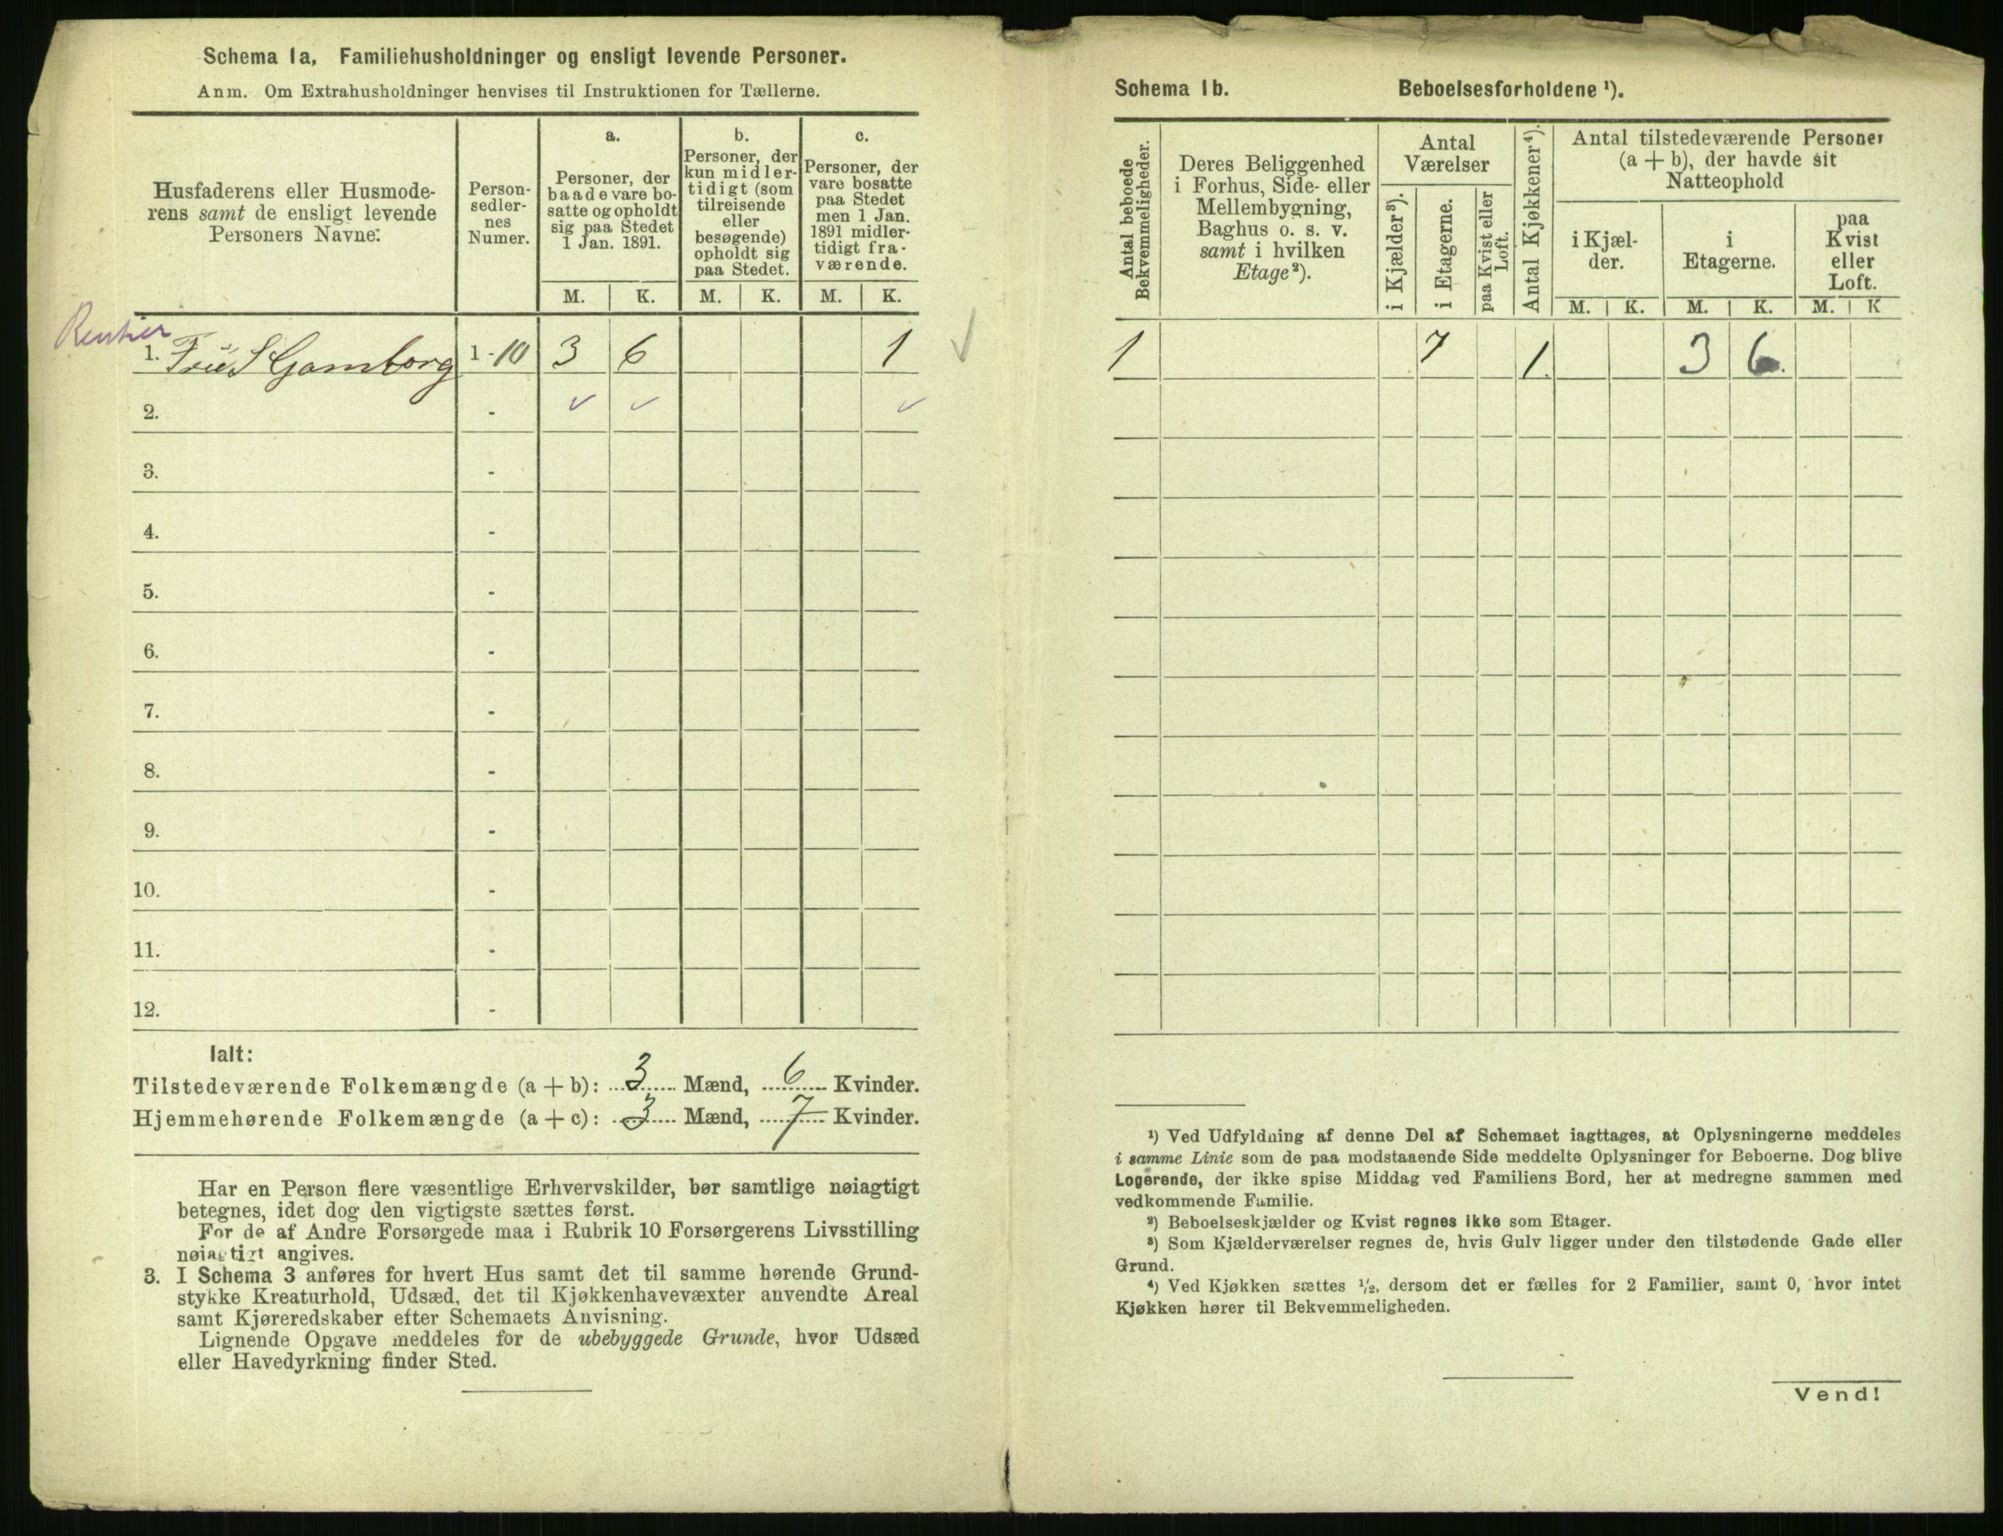 Schema 1a. Familiehusholdninger og ensligt levende Personer.
Anm. Om Extrahusholdninger henvises til Instruktionen for Tællerne.
Husfaderens eller Husmode-
rens samt de ensligt levende
Personers Navne:
Person-
sedler-
nes
Numer.
a.
Personer, der
baade vare bo-
satte og opholdt
sig paa Stedet
1 Jan. 1891.
b.
Personer, der
kun midler-
tidigt (som
tilreisende
eller
besøgende)
opholdt sig
paa Stedet.
c.
Personer, der
vare bosatte
paa Stedet
men 1 Jan.
1891 midler-
tidigt fra-
værende.
M. K. M. K. M. K.
Rentier
1. S Gamborg 1 - 10 3 6 1 ✓
2. - ✓ ✓ ✓
3. -
4. -
5. -
6. -
7. -
8. -
9. -
10. -
11. -
12. -
Ialt:
Tilstedeværende Folkemængde (a + b): 3 Mænd, 6 Kvinder.
Hjemmehørende Folkemængde (a + c): 3 Mænd, 7 Kvinder.
Har en Person flere væsentlige Erhvervskilder, bør samtlige nøiagtigt
betegnes, idet dog den vigtigste sættes først.
For de af Andre Forsørgede maa i Rubrik 10 Forsørgerens Livsstilling
nøiagtigt angives.
3. I Schema 3 anføres for hvert Hus samt det til samme hørende Grund-
stykke Kreaturhold, Udsæd, det til Kjøkkenhavevæxter anvendte Areal
samt Kjøreredskaber efter Schemaets Anvisning.
Lignende Opgave meddeles for de ubebyggede Grunde, hvor Udsæd
eller Havedyrkning finder Sted.
Schema 1b. Beboelsesforholdene ¹).
Antal beboede
Bekvemmeligheder.
Deres Beliggenhed
i Forhus, Side- eller
Mellembygning,
Baghus o. s. v.
samt i hvilken
Etage ²).
Antal
Værelser
i Kjælder ³).
i Etagerne.
paa Kvist eller
Loft.
Antal Kjøkkener ⁴).
Antal tilstedeværende Personer
(a + b), der havde sit
Natteophold
i Kjæl-
der.
i
Etagerne.
paa
Kvist
eller
Loft.
M. K. M. K. M. K
1 7 1. 3 6.
¹) Ved Udfyldning af denne Del af Schemaet iagttages, at Oplysningerne meddeles
i samme Linie som de paa modstaaende Side meddelte Oplysninger for Beboerne. Dog blive
Logerende, der ikke spise Middag ved Familiens Bord, her at medregne sammen med
vedkommende Familie.
²) Beboelseskjælder og Kvist regnes ikke som Etager.
³) Som Kjælderværelser regnes de, hvis Gulv ligger under den tilstødende Gade eller
Grund.
⁴) Ved Kjøkken sættes ½, dersom det er fælles for 2 Familier, samt 0, hvor intet
Kjøkken hører til Bekvemmeligheden.
Vend!